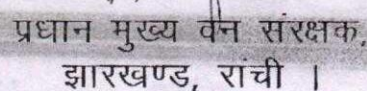 प्रधान मुख्य वन संरक्षक,
झारखण्ड, रांची ।